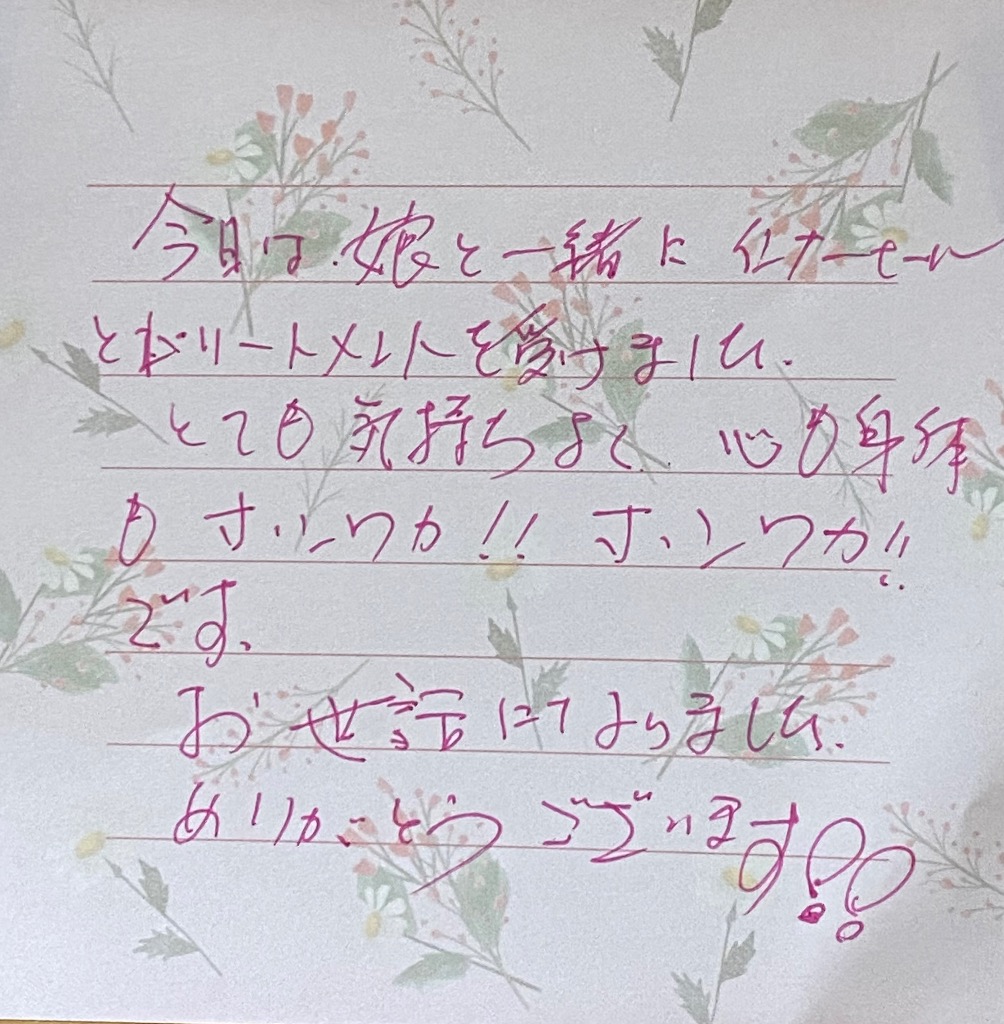 今日は娘と一緒にインナーセール
トリートメントを受けました.
とても気持ちよく、心も身体
もホンワカ!!ホンワカ!!
です.
お世話になりました.
ありがとうございます!!